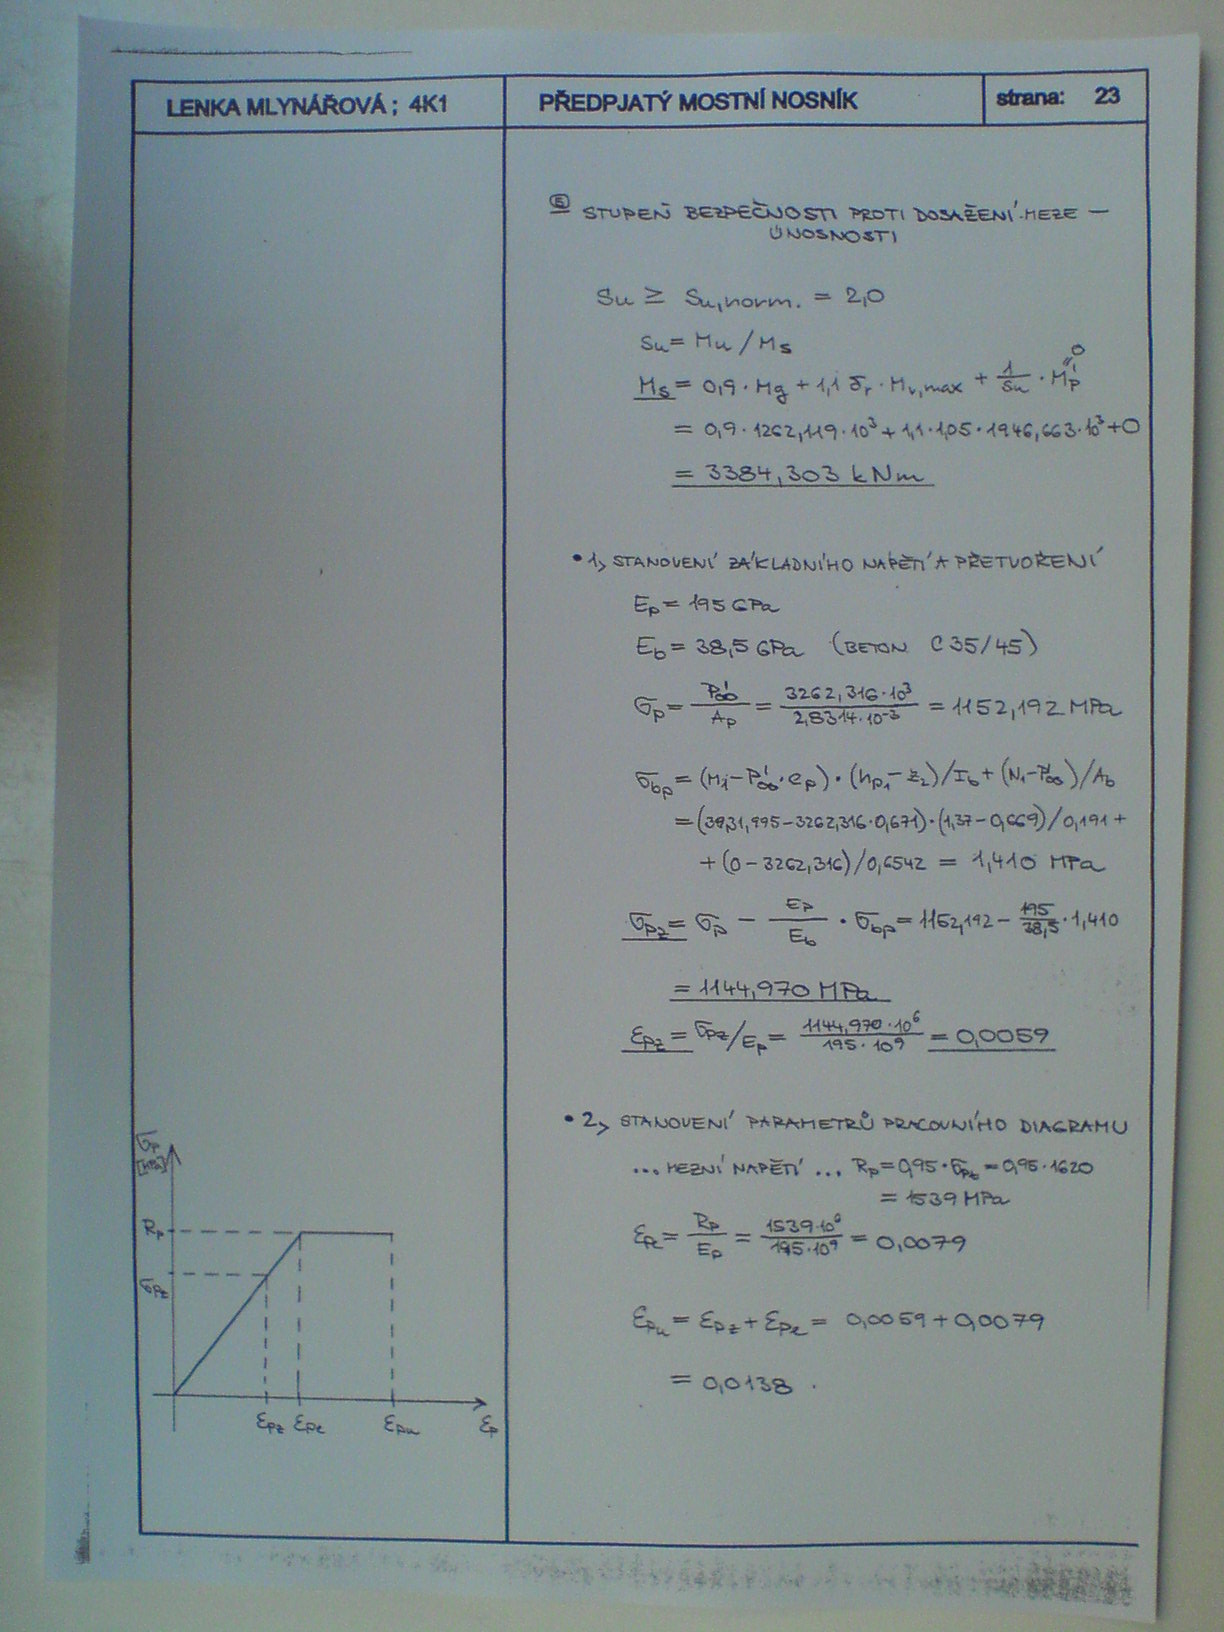 LENKA MLYNÁŘOVÁ ; 4K1
PŘEDPJATÝ MOSTNÍ NOSNÍK
strana: 23
⑤ STUPEŇ BEZPEČNOSTI PROTI DOSAŽENÍ MEZE –
ÚNOSNOSTI
Su ≥ Su,norm. = 2,0
Su = Mu / Ms
Ms = 0,9 · Mg + 1,1 δr · Mv,max + 1/Su · Mp' = 0
= 0,9 · 1262,119 · 10³ + 1,1 · 1,05 · 1946,663 · 10³ + 0
= 3384,303 kNm
• 1, STANOVENÍ ZÁKLADNÍHO NAPĚTÍ A PŘETVOŘENÍ
Ep = 195 GPa
Eb = 38,5 GPa (BETON C 35/45)
σp = P'∞ / Ap = 3262,316 · 10³ / 2,8314 · 10⁻³ = 1152,192 MPa
σbp = (M1 – P'∞ · ep) · (hp1 – z2) / Ib + (N1 – P'∞) / Ab
= (3931,995 – 3262,316 · 0,671) · (1,37 – 0,669) / 0,191 +
+ (0 – 3262,316) / 0,6542 = 1,410 MPa
σpz = σp – Ep / Eb · σbp = 1152,192 – 195 / 38,5 · 1,410
= 1144,970 MPa
εpz = σpz / Ep = 1144,970 · 10⁶ / 195 · 10⁹ = 0,0059
• 2, STANOVENÍ PARAMETRŮ PRACOVNÍHO DIAGRAMU
... MEZNÍ NAPĚTÍ ... Rp = 0,95 · σpt = 0,95 · 1620
= 1539 MPa
εpe = Rp / Ep = 1539 · 10⁶ / 195 · 10⁹ = 0,0079
εpu = εpz + εpe = 0,0059 + 0,0079
= 0,0138 .
σp
[MPa]
Rp
σpz
εpz εpe εpu εp